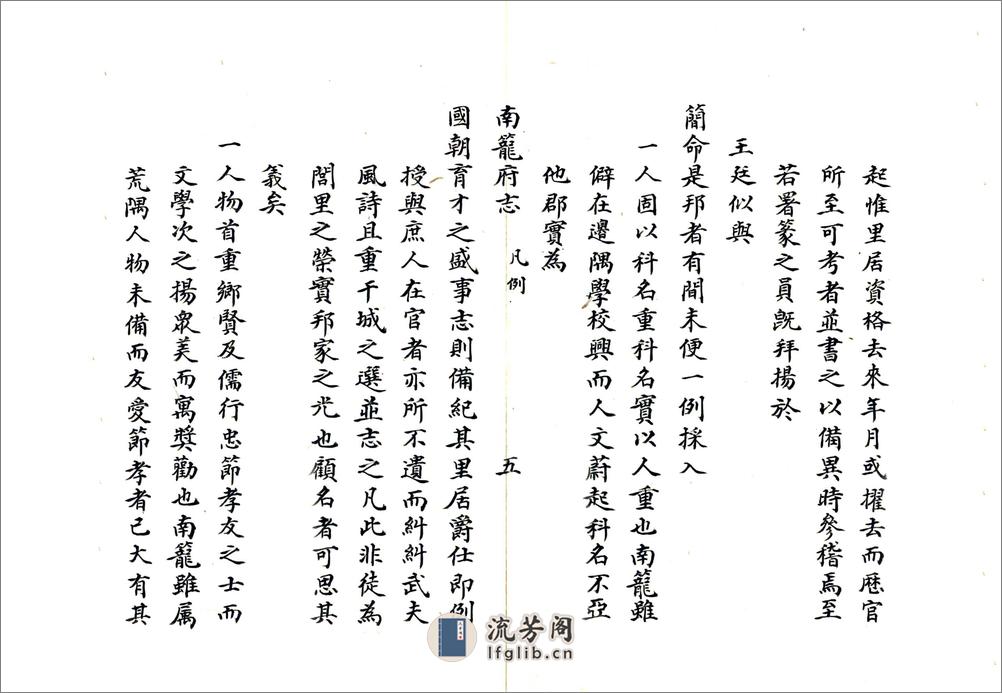 起惟里居資格去來年月或擢去而歷官
所至可考者並書之以備異時參稽焉至
若署篆之員旣拜揚於
王廷似與
簡命是邦者有間未便一例採入
一人固以科名重科名實以人重也南籠雖
僻在邊隅學校興而人文蔚起科名不亞
他郡實為
南籠府志 凡例 五
國朝育才之盛事志則備紀其里居爵仕即例
授與庶人在官者亦所不遺而糾糾武夫
風詩且重干城之選並志之凡此非徒為
閭里之榮實邦家之光也顧名者可思其
義矣
一人物首重鄉賢及儒行忠節孝友之士而
文學次之揚眾美而寓奬勸也南籠雖属
荒隅人物未備而友愛節孝者已大有其
流芳阁
lfglib.cn